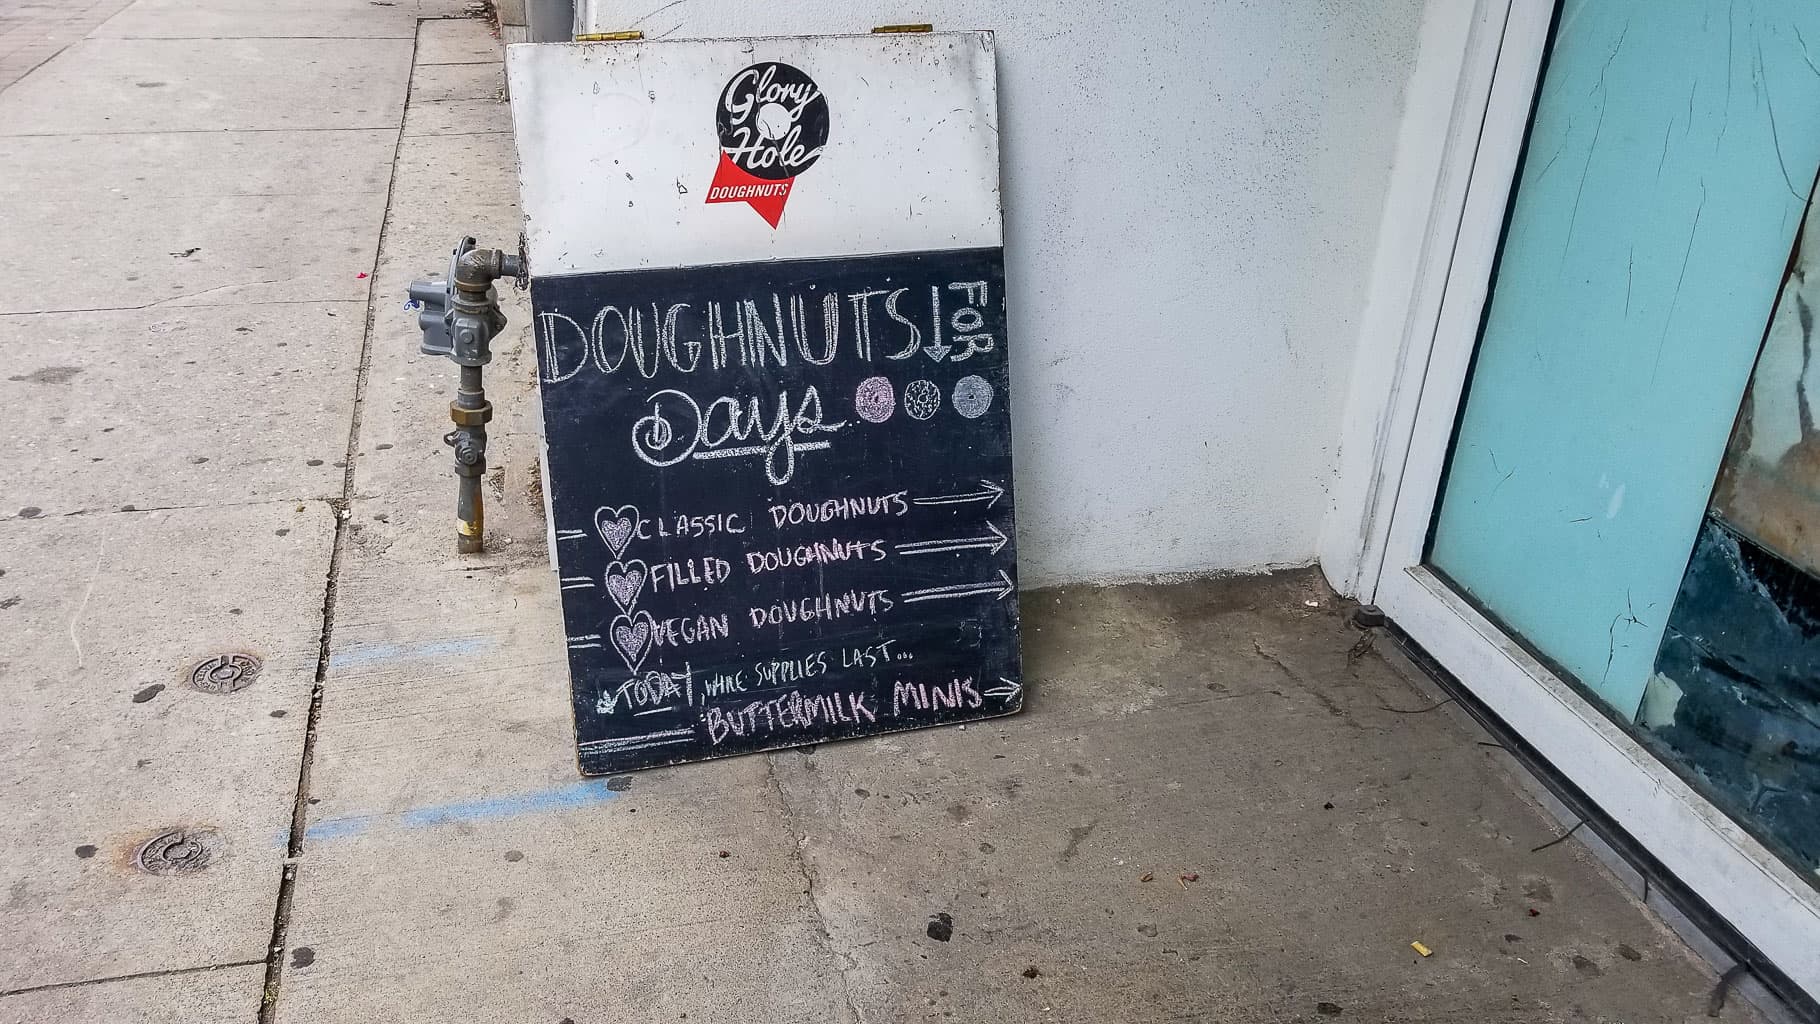 Glory
Hole
DOUGHNUTS
DOUGHNUTS FOR
Days
CLASSIC DOUGHNUTS
FILLED DOUGHNUTS
VEGAN DOUGHNUTS
TODAY, WHILE SUPPLIES LAST...
BUTTERMILK MINIS